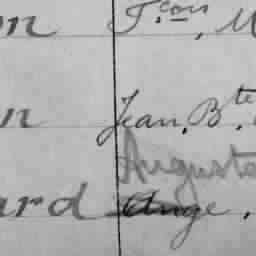 on F.çois, M
n Jean, Bte,
Auguste
ard Ange,